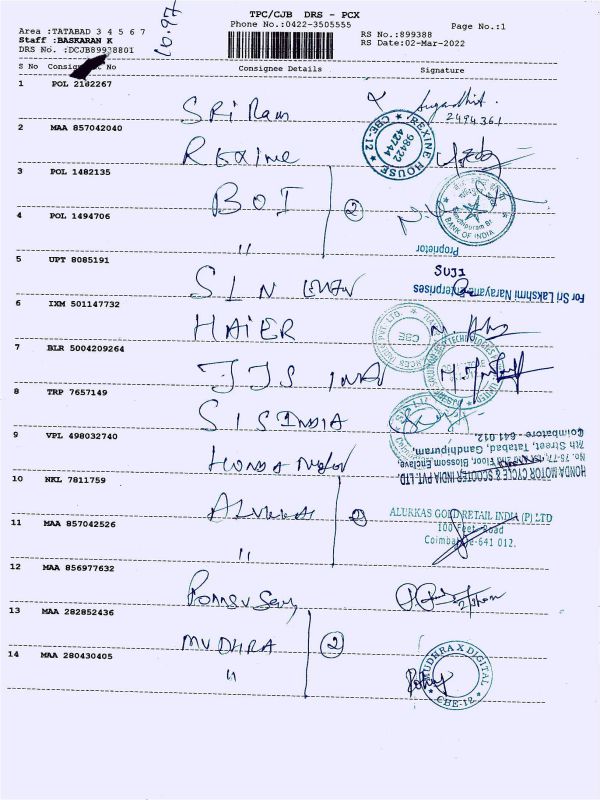 16.97
TPC/CJB DRS - PCX
Phone No.:0422-3505555
Page No.:1
Area :TATABAD 3 4 5 6 7
Staff :BASKARAN K
DRS No. :DCJB89938801
RS No.:899388
RS Date:02-Mar-2022
S No Consignment No Consignee Details Signature
1 POL 2182267 SRi Ram
2494361
2 MAA 857042040 Rexine
REXINE HOUSE
98422
42744
CBE-12
3 POL 1482135 BOI 2
Gandhipuram Br.
BANK OF INDIA
4 POL 1494706 "
Proprietor
5 UPT 8085191 SLN
SUJI
For Sri Lakshmi Narayana Enterprises
6 IXM 501147732 HAIER
CBE
7 BLR 5004209264 JJS IND
8 TRP 7657149 SIS INDIA
9 VPL 498032740 HONDA
HONDA MOTOR CYCLE & SCOOTER INDIA PVT. LTD
Floor, Blossom Enclave,
7th Street, Tatabad, Gandhipuram,
Coimbatore - 641 012.
10 NKL 7811759 2
11 MAA 857042526 "
ALURKAS GOLD RETAIL INDIA (P) LTD
100 Feet Road
Coimbatore-641 012.
12 MAA 856977632
13 MAA 282852436 MUDHRA 2
14 MAA 280430405 "
MUDHRA X DIGITAL
CBE-12